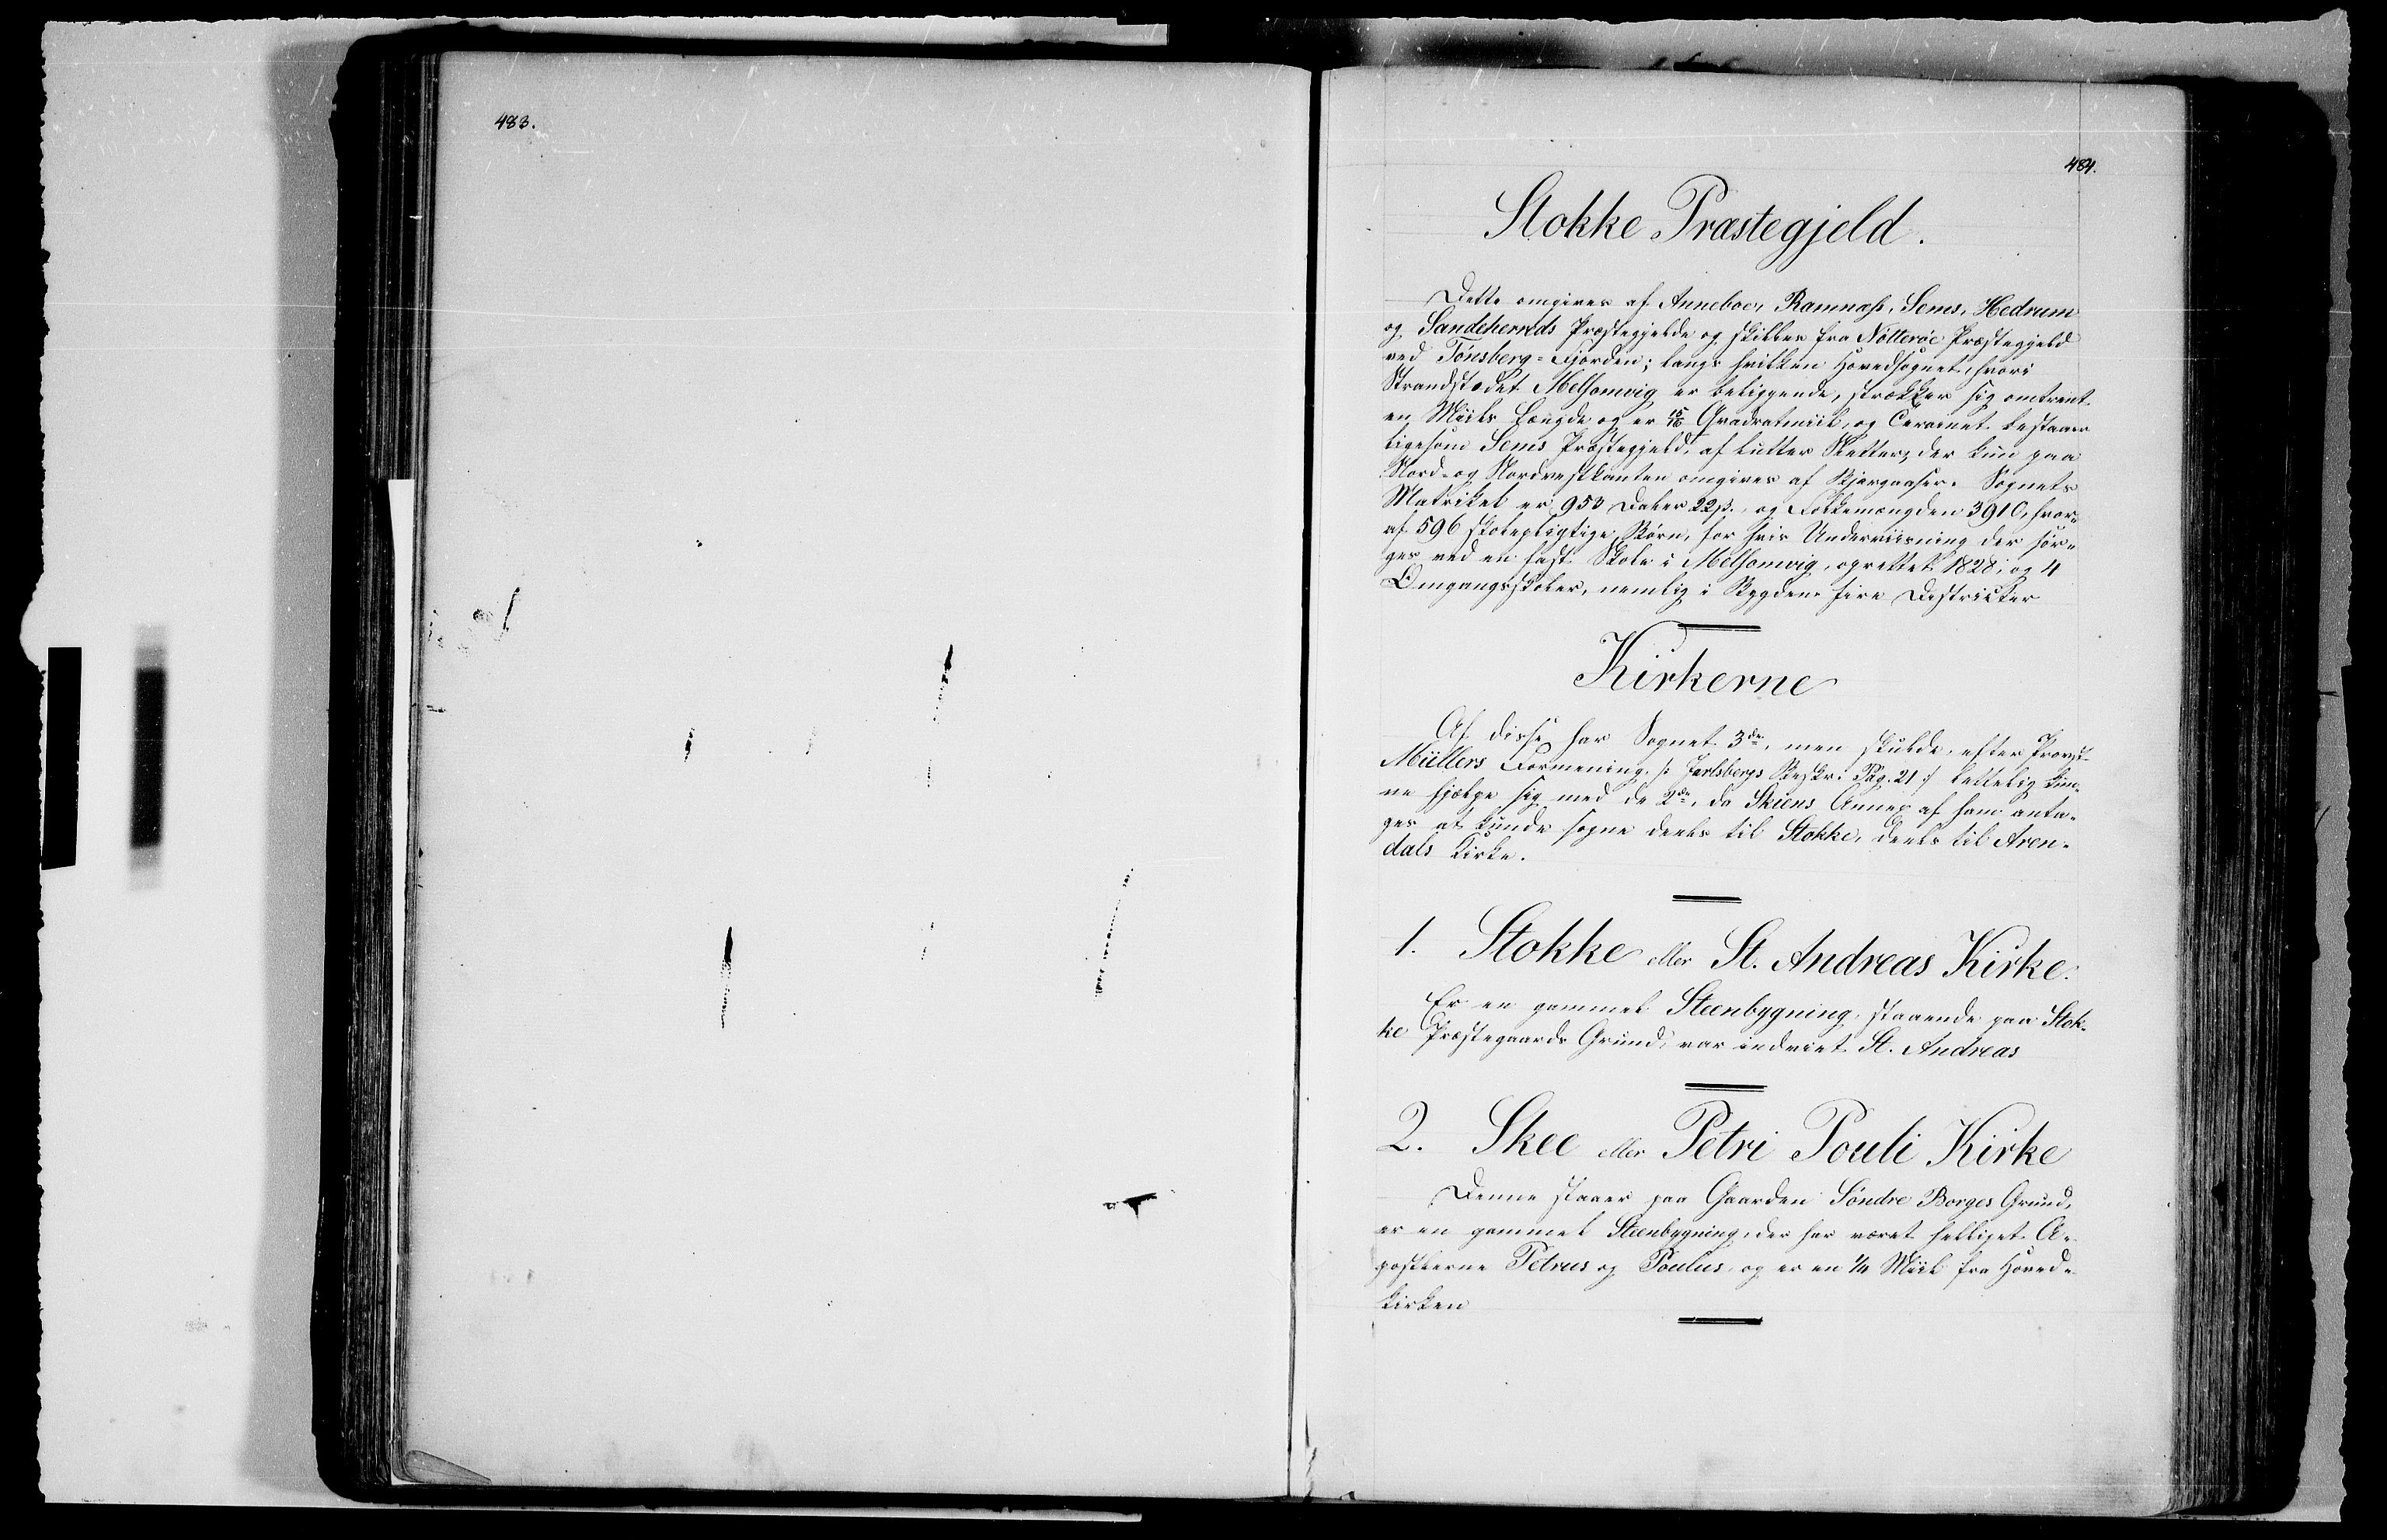 483.
484.
Stokke Præstegjeld.
Dette omgives af Anneboe, Ramnæs, Sems, Hedrum
og Sandeherreds Præstegjelde og skilles fra Nötteröe Præstegjeld
ved Tönsberg-Fjorden; langs hvilken Hovedsognet, hvori
Strandstædet Melsomvig er beliggende, strækker sig omtrent
en Miils Længde og er 15/16 Qvadratmiil, og Terrainet bestaaer
ligesom Sems Præstegjeld, af lutter Sletter, der kun paa
Nord- og Nordvestkanten omgives af Bjergaaser. Sognets
Matrikel er 953 Daler 22 ß., og Folkemængden 3910, hvor-
af 596 skolepligtige Börn, for hvis Underviisning der sör-
ges ved en fast Skole i Melsomvig, oprettet 1828, og 4
Omgangsskoler, nemlig i Bygdens fire Districter
Kirkerne
Af disse har Sognet 3de, men skulde, efter Provst
Müllers Formening /: Jarlsbergs Beskr. Pag. 21 :/ lettelig kun-
ne hjælpe sig med de 2de, da Skiens Annex af ham anta-
ges at kunde sogne deels til Stokke, deels til Aren-
dals Kirke.
1. Stokke eller St. Andreas Kirke.
Er en gammel Steenbygning, staaende paa Stok-
ke Præstegaards Grund, var indviet St. Andreas
2. Skee eller Petri Pouli Kirke
Denne staaer paa Gaarden Söndre Borges Grund,
er en gammel Steenbygning, der har været helliget A-
postlerne Petrus og Poulus, og er en 1/4 Miil fra Hoved-
kirken